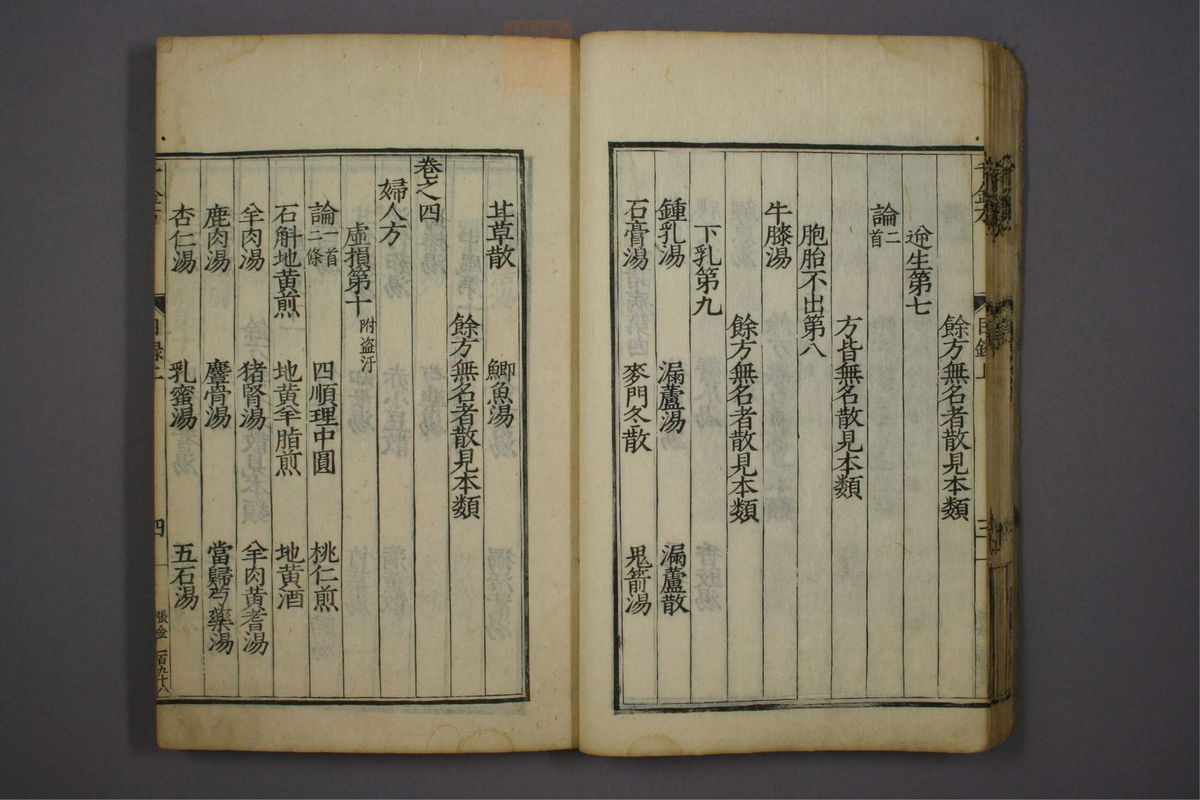 餘方無名者散見本類
逆生第七
論二首
方皆無名散見本類
胞胎不出第八
牛膝湯
餘方無名者散見本類
下乳第九
鍾乳湯 漏蘆湯 漏蘆散
石膏湯 麥門冬散 鬼箭湯
甘草散 鯽魚湯
餘方無名者散見本類
卷之四
婦人方
虛損第十 附盜汗
論一首二條 四順理中圓 桃仁煎
石斛地黄煎 地黄羊脂煎 地黄酒
羊肉湯 猪腎湯 羊肉黄耆湯
鹿肉湯 麞骨湯 當歸芍藥湯
杏仁湯 乳蜜湯 五石湯
目録上
四
張金 一百九十八